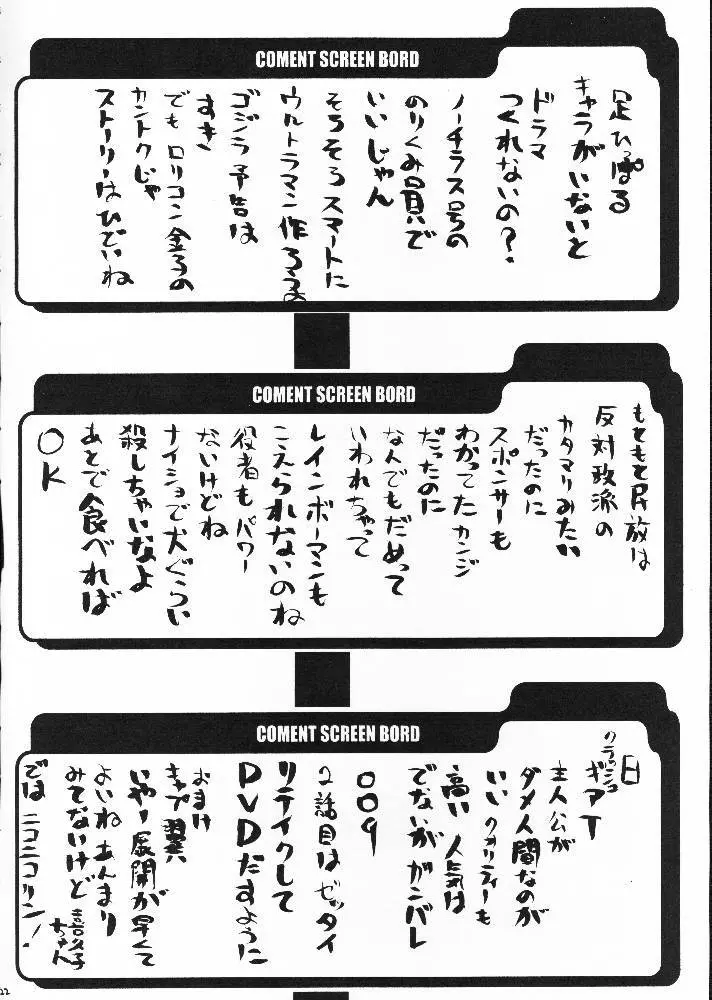 COMENT SCREEN BORD
足ひっぱる
キャラがいないと
ドラマ
つくれないの?
ノーチラス号の
のりくみ員で
いいじゃん
そろそろスマートに
ウルトラマン作ろうよ
ゴジラ予告は
すき、
でもロリコン金子の
カントクじゃ
ストーリーはひどいね
COMENT SCREEN BORD
もともと民放は
反対政派の
カタマリみたい
だったのに
スポンサーも
わかってたカンジ
だったのに
なんでもだめって
いわれちゃって
レインボーマンも
こえられないのね
役者もパワー
ないけどね
ナイショで犬ぐらい
殺しちゃいなよ
あとで食べれば
OK
COMENT SCREEN BORD
日
クラッシュ
ギアT
主人公が
ダメ人間なのが
いいクオリティーも
高い人気は
でないがガンバレ
009
2話目はゼッタイ
リテイクして
DVDだすように
おまけ
キャプ翼
いやー展開が早くて
よいねあんまり
みてないけど
喜久子ちゃん
では ニコニコリン!
22